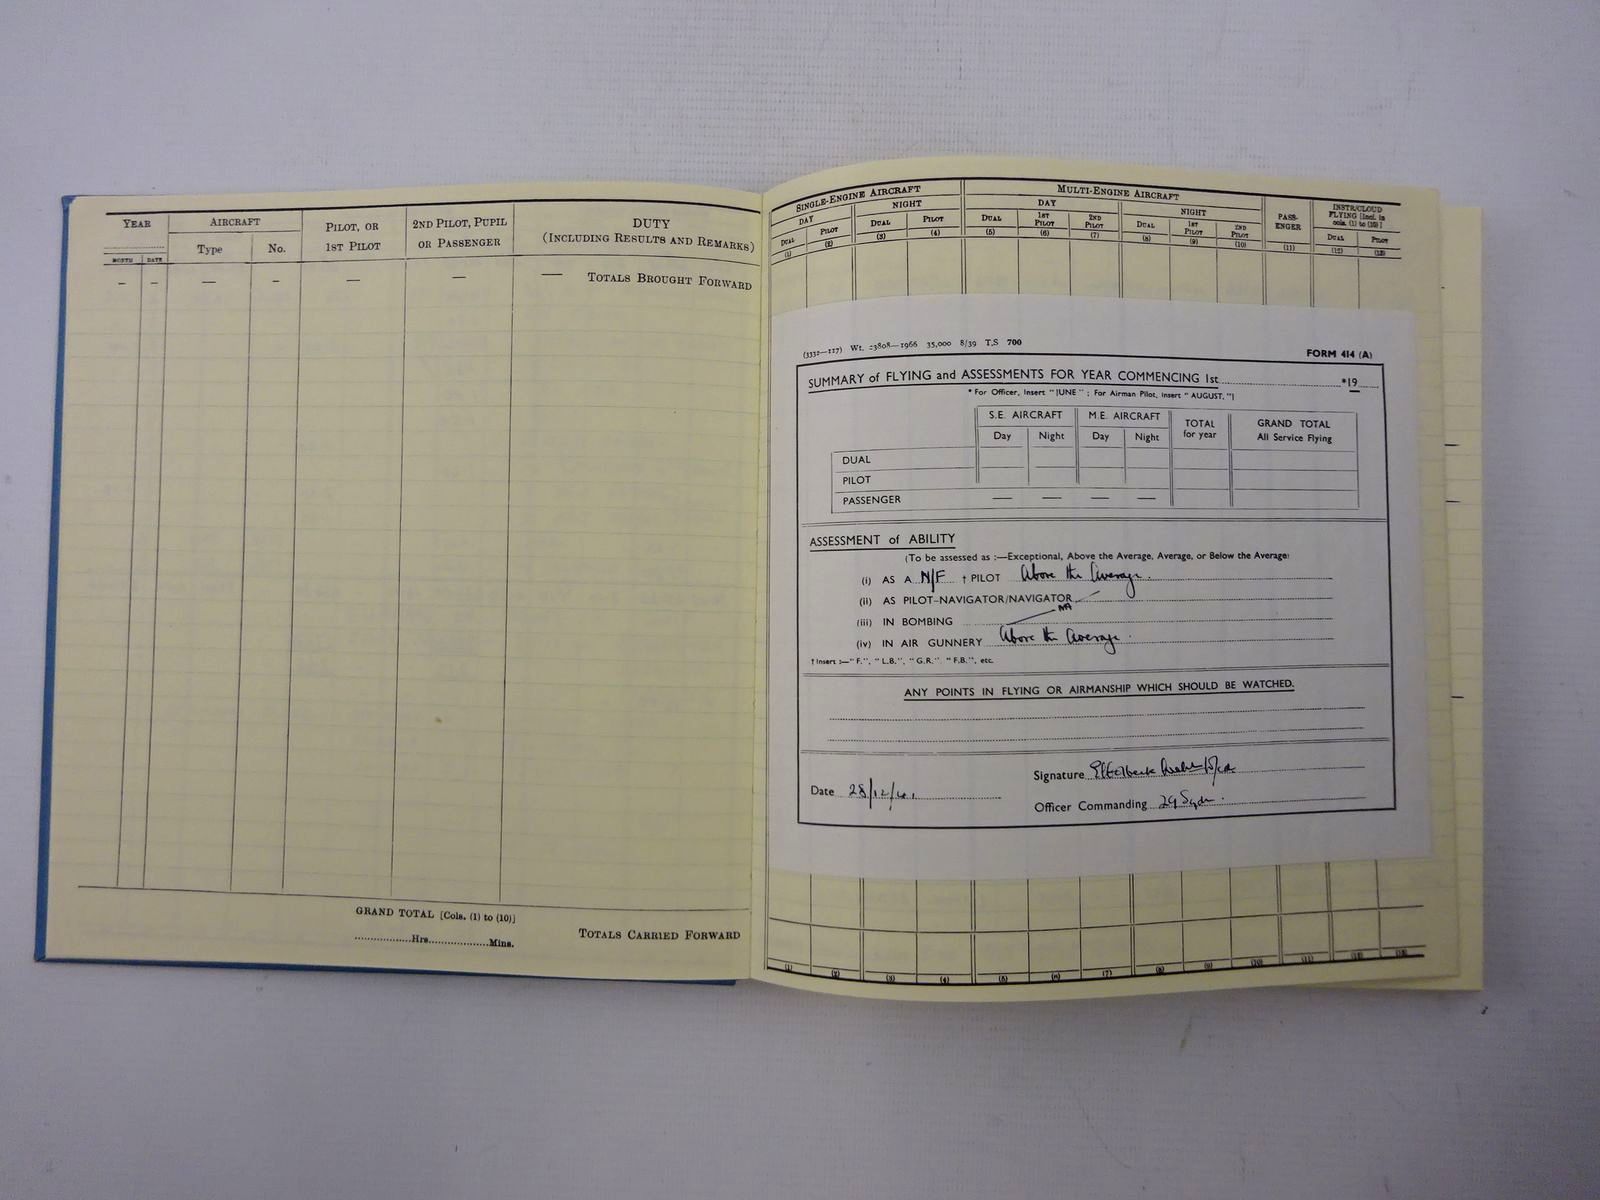 YEAR
AIRCRAFT
PILOT, OR
1ST PILOT
2ND PILOT, PUPIL
OR PASSENGER
DUTY
(INCLUDING RESULTS AND REMARKS)
MONTH DATE Type No.
— — — — — — — TOTALS BROUGHT FORWARD
GRAND TOTAL [Cols. (1) to (10)]
..................Hrs....................Mins.
TOTALS CARRIED FORWARD
SINGLE-ENGINE AIRCRAFT MULTI-ENGINE AIRCRAFT
DAY NIGHT DAY NIGHT
PASS-
ENGER
INSTR/CLOUD
FLYING [Incl. in
cols. (1) to (10)]
DUAL PILOT DUAL PILOT DUAL 1ST PILOT 2ND PILOT DUAL 1ST PILOT 2ND PILOT DUAL PILOT
(1) (2) (3) (4) (5) (6) (7) (8) (9) (10) (11) (12) (13)
(3332—117) Wt. 23808—1966 35,000 8/39 T.S 700
FORM 414 (A)
SUMMARY of FLYING and ASSESSMENTS FOR YEAR COMMENCING 1st..............................*19......
* For Officer, insert "JUNE" ; For Airman Pilot, insert "AUGUST."]
S.E. AIRCRAFT M.E. AIRCRAFT
TOTAL
for year
GRAND TOTAL
All Service Flying
Day Night Day Night
DUAL
PILOT
PASSENGER — — — —
ASSESSMENT of ABILITY
(To be assessed as :—Exceptional, Above the Average, Average, or Below the Average)
(i) AS A N/F † PILOT Above the Average.
(ii) AS PILOT-NAVIGATOR/NAVIGATOR
NA
(iii) IN BOMBING
(iv) IN AIR GUNNERY Above the Average.
† Insert :—"F.", "L.B.", "G.R.". "F.B.", etc.
ANY POINTS IN FLYING OR AIRMANSHIP WHICH SHOULD BE WATCHED.
Signature
Date 28/12/41
Officer Commanding 29 Sqdn.
(1) (2) (3) (4) (5) (6) (7) (8) (9) (10) (11) (12) (13)